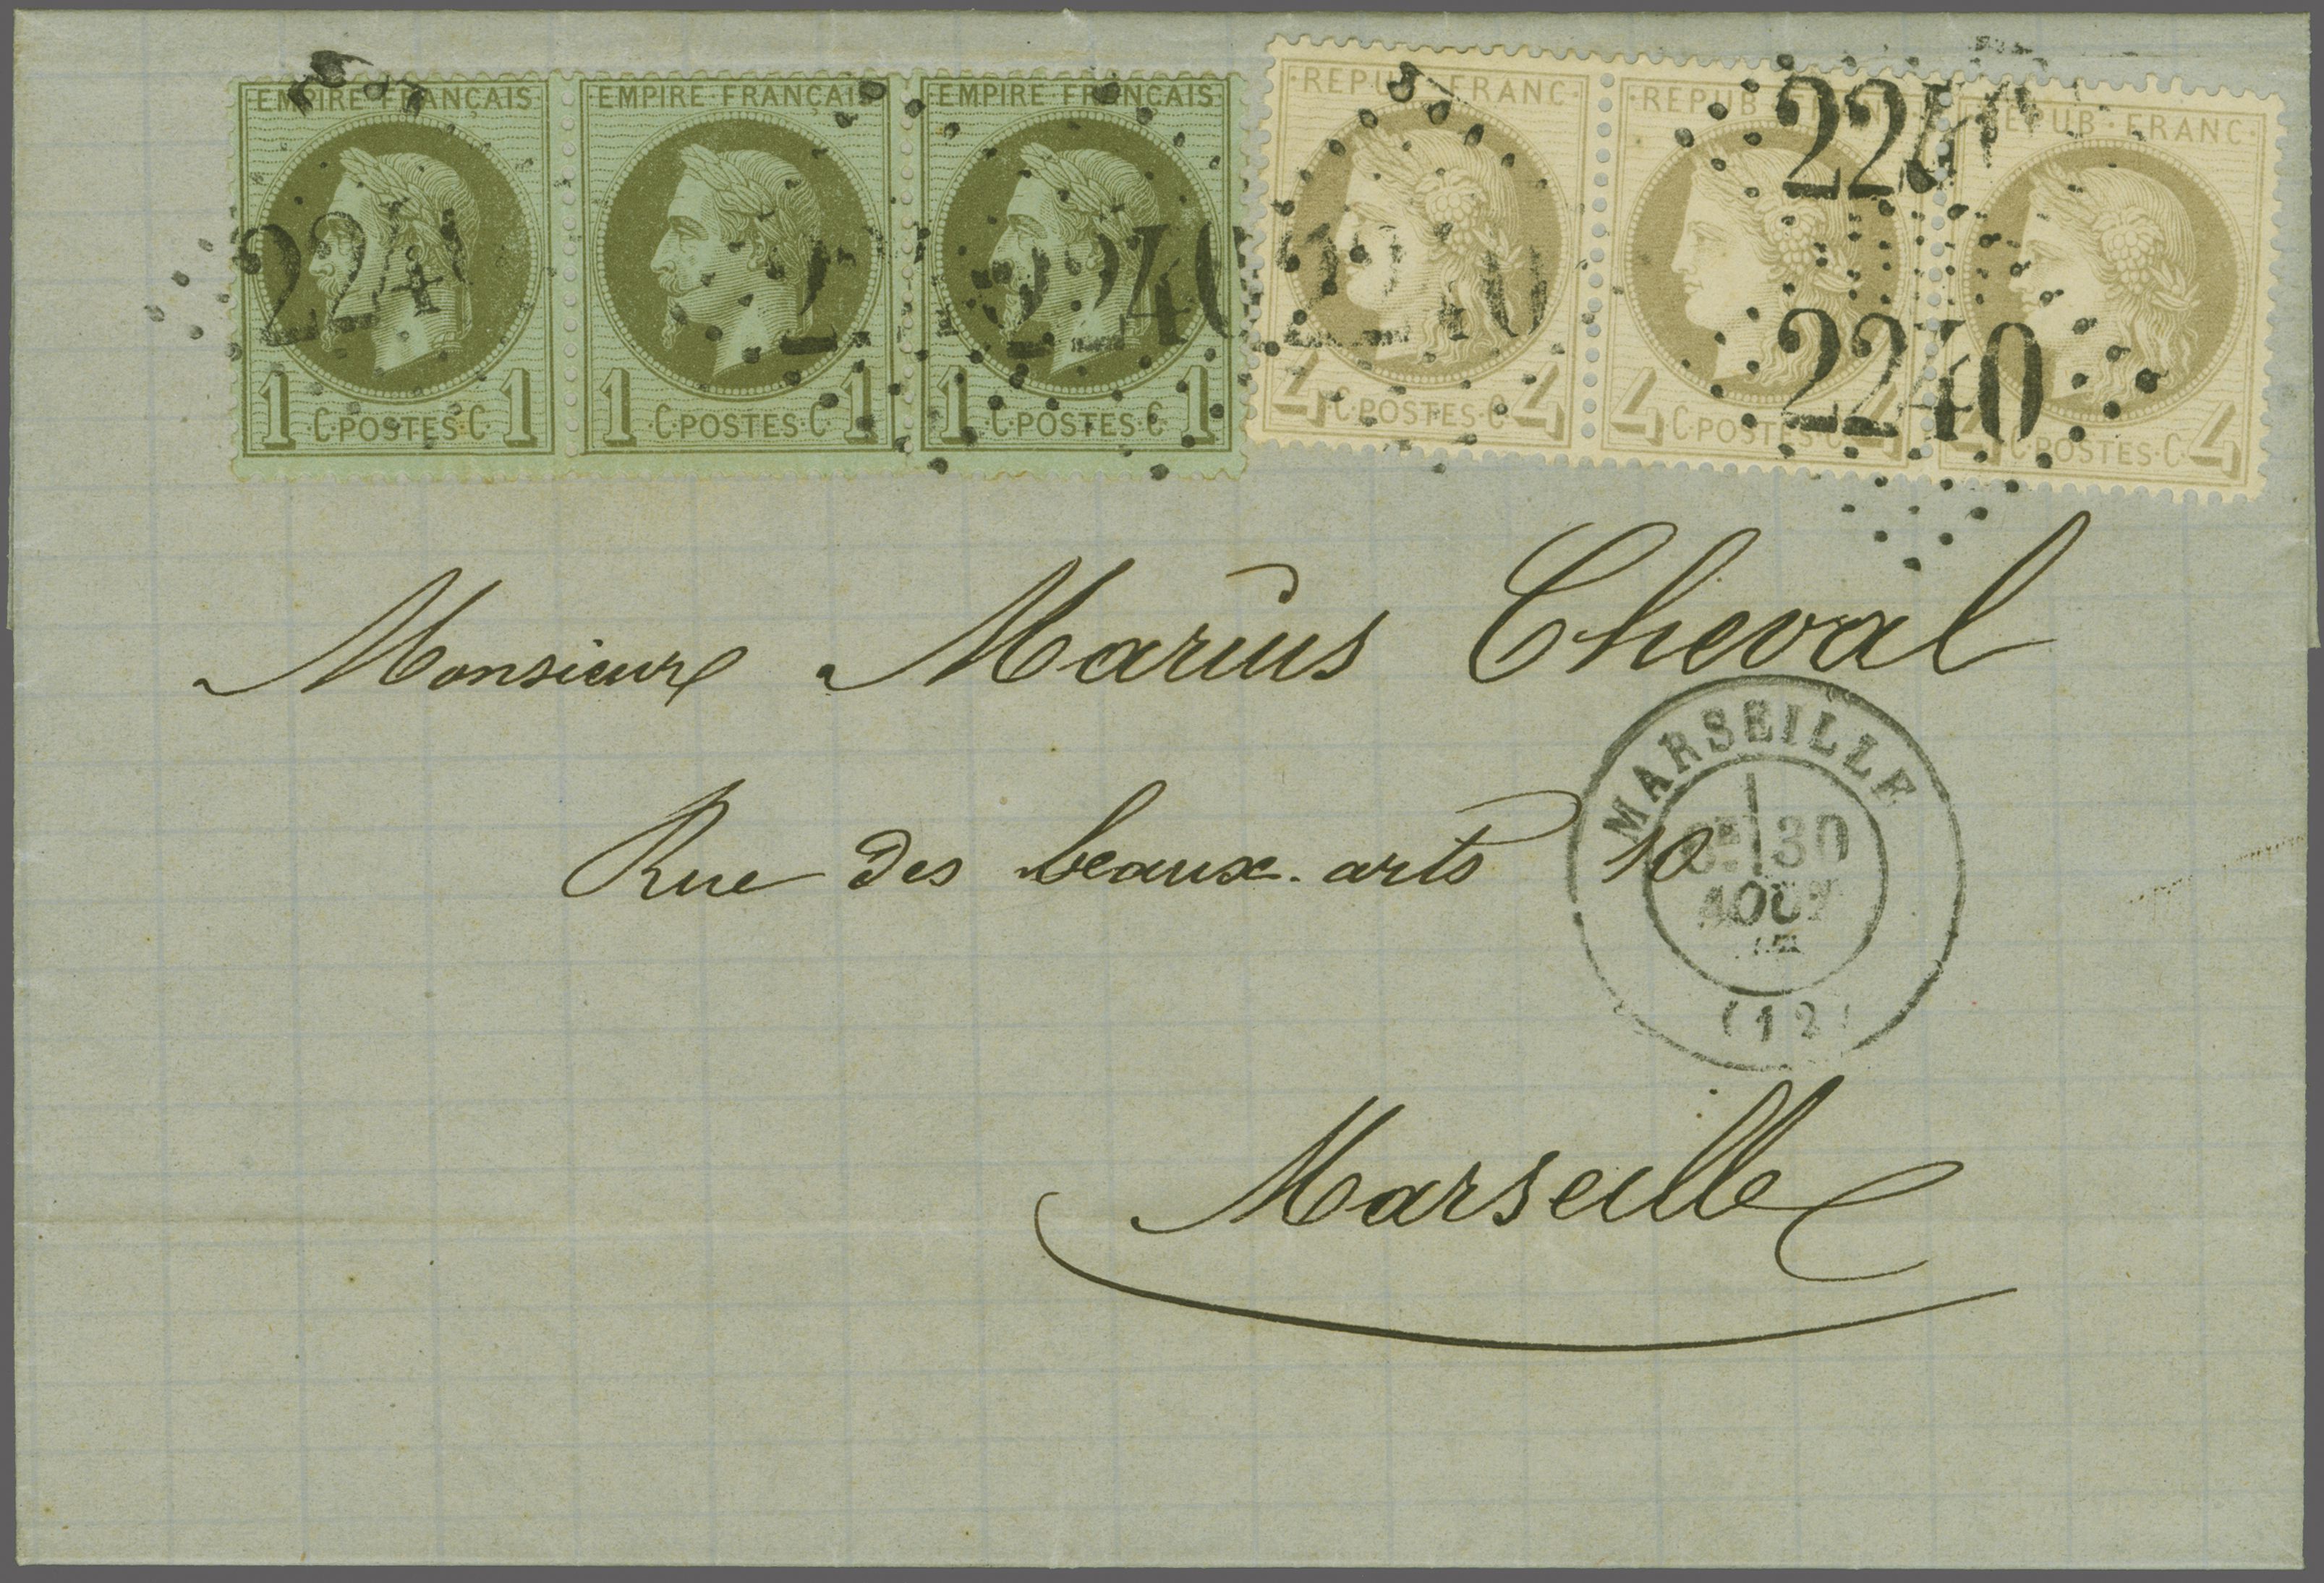 EMPIRE FRANÇAIS EMPIRE FRANÇAIS EMPIRE FRANÇAIS
1 C·POSTES·C 1 1 C·POSTES·C 1 1 C·POSTES·C 1
REPUB·FRANC· ·REPUB·FRANC· REPUB·FRANC·
4 C·POSTES·C 4 4 C·POSTES·C 4 4 C·POSTES·C 4
224 2 2240 2240 2240
2240
Monsieur Marius Cheval
Rue des beaux-arts 10
MARSEILLE
30
AOUT
(12)
Marseille